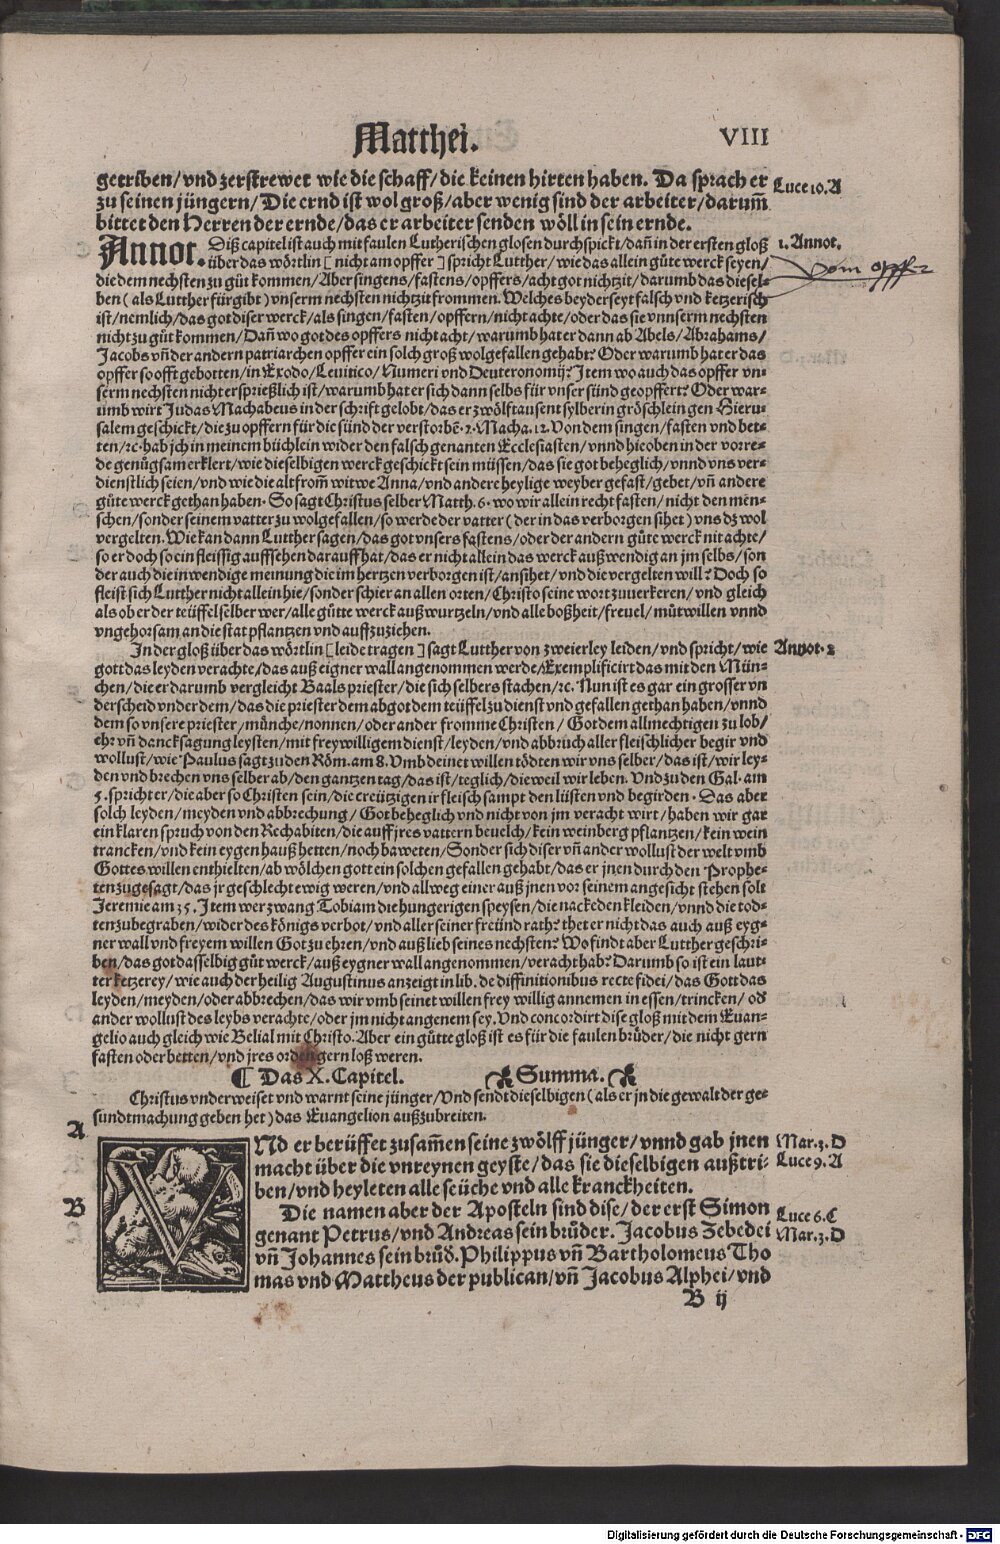 Matthei.
VIII
getriben/vnd zerstrewet wie die schaff/die keinen hirten haben. Da sprach er
Luce 10. A
zu seinen jüngern/Die ernd ist wol groß/aber wenig sind der arbeiter/darum̃
bittet den Herren der ernde/das er arbeiter senden wöll in sein ernde.
Annot. Diß capitel ist auch mit faulen Lutherischen glosen durchspickt/dañ in der ersten gloß
1. Annot.
über das wörtlin [nicht am opffer] spricht Lutther/wie das allein gůte werck seyen/
vom opffer
die dem nechsten zu gůt kommen/Aber singens/fastens/opffers/acht got nichtzit/darumb das diesel-
ben (als Lutther fürgibt) vnserm nechsten nichtzit frommen. Welches beyderseyt falsch vnd ketzerisch
ist/nemlich/das got diser werck/als singen/fasten/opffern/nicht achte/oder das sie vnnserm nechsten
nicht zu gůt kommen/Dañ wo got des opffers nicht acht/warumb hat er dann ab Abels/Abrahams/
Jacobs vñ der andern patriarchen opffer ein solch groß wolgefallen gehabt? Oder warumb hat er das
opffer so offt gebotten/in Exodo/Leuitico/Numeri vnd Deuteronomij? Item wo auch das opffer vn-
serm nechsten nicht ersprießlich ist/warumb hat er sich dann selbs für vnser sünd geopffert? Oder war-
umb wirt Judas Machabeus in der schrift gelobt/das er zwölftausent sylberin gröschlein gen Hieru-
salem geschickt/die zu opffern für die sünd der verstorbẽ. 2. Macha. 12. Von dem singen/fasten vnd bet-
ten/ꝛc. hab jch in meinem büchlein wider den falsch genanten Ecclesiasten/vnnd hieoben in der vorre-
de genůgsam erklert/wie dieselbigen werck geschickt sein müssen/das sie got beheglich/vnnd vns ver-
dienstlich seien/vnd wie die alt from̃ witwe Anna/vnd andere heylige weyber gefast/gebet/vñ andere
gůte werck gethan haben. So sagt Christus selber Matth. 6. wo wir allein recht fasten/nicht den men-
schen/sonder seinem vatter zu wolgefallen/so werde der vatter (der in das verborgen sihet) vns dz wol
vergelten. Wie kan dann Lutther sagen/das got vnsers fastens/oder der andern gůte werck nit achte/
so er doch so ein fleissig auffsehen darauff hat/das er nicht allein das werck außwendig an jm selbs/son
der auch die inwendige meinung die im hertzen verborgen ist/ansihet/vnd die vergelten will? Doch so
fleist sich Lutther nicht allein hie/sonder schier an allen orten/Christo seine wort zuuerkeren/vnd gleich
als ob er der teüffel selber wer/alle gůtte werck außwurtzeln/vnd alle boßheit/freuel/můtwillen vnnd
vngehorsam an die stat pflantzen vnd auffzuziehen.
In der gloß über das wörtlin [leide tragen] sagt Lutther von zweierley leiden/vnd spricht/wie
Annot. 2
gott das leyden verachte/das auß eigner wall angenommen werde/Exemplificirt das mit den Mün-
chen/die er darumb vergleicht Baals priester/die sich selbers stachen/ꝛc. Nun ist es gar ein grosser vn
derscheid vnder dem/das die priester dem abgot dem teüffel zu dienst vnd gefallen gethan haben/vnnd
dem so vnsere priester/münche/nonnen/oder ander fromme Christen/Got dem allmechtigen zu lob/
ehr vñ dancksagung leysten/mit freywilligem dienst/leyden/vnd abbruch aller fleischlicher begir vnd
wollust/wie Paulus sagt zu den Röm. am 8. Vmb deinet willen tödten wir vns selber/das ist/wir ley-
den vnd brechen vns selber ab/den gantzen tag/das ist/teglich/dieweil wir leben. Vnd zu den Gal. am
5. spricht er/die aber so Christen sein/die creützigen ir fleisch sampt den lüsten vnd begirden. Das aber
solch leyden/meyden vnd abbrechung/Got beheglich vnd nicht von jm veracht wirt/haben wir gar
ein klaren spruch von den Rechabiten/die auff jres vattern beuelch/kein weinberg pflantzen/kein wein
trancken/vnd kein eygen hauß hetten/noch baweten/Sonder sich diser vñ ander wollust der welt vmb
Gottes willen enthielten/ab wölchen gott ein solchen gefallen gehabt/das er jnen durch den Prophe-
ten zugesagt/das jr geschlecht ewig weren/vnd allweg einer auß jnen vor seinem angesicht stehen solt
Jeremie am 35. Item wer zwang Tobiam die hungerigen speysen/die nackeden kleiden/vnnd die tod-
ten zubegraben/wider des königs verbot/vnd aller seiner freünd rath? thet er nicht das auch auß eyg-
ner wall vnd freyem willen Got zu ehren/vnd auß lieb seines nechsten? Wo findt aber Lutther geschri-
ben/das got dasselbig gůt werck/auß eygner wall angenommen/veracht hab? Darumb so ist ein laut-
ter ketzerey/wie auch der heilig Augustinus anzeigt in lib. de diffinitionibus recte fidei/das Gott das
leyden/meyden/oder abbrechen/das wir vmb seinet willen frey willig annemen in essen/trincken/od̃
ander wollust des leybs verachte/oder jm nicht angenem sey. Vnd concordirt dise gloß mit dem Euan-
gelio auch gleich wie Belial mit Christo. Aber ein gůtte gloß ist es für die faulen brůder/die nicht gern
fasten oder betten/vnd jres orden gern loß weren.
¶ Das X. Capitel. Summa.
Christus vnderweiset vnd warnt seine jünger/Vnd sendt dieselbigen (als er jn die gewalt der ge-
sundtmachung geben het) das Euangelion außzubreiten.
A
VNd er berüffet zusam̃en seine zwölff jünger/vnnd gab jnen
Mar. 3. D
macht über die vnreynen geyste/das sie dieselbigen außtri-
Luce 9. A
ben/vnd heyleten alle seüche vnd alle kranckheiten.
B
Die namen aber der Aposteln sind dise/der erst Simon
Luce 6. C
genant Petrus/vnd Andreas sein brůder. Jacobus Zebedei
Mar. 3. D
vñ Johannes sein brůd̃. Philippus vñ Bartholomeus Tho
mas vnd Mattheus der publican/vñ Jacobus Alphei/vnd
B ij
Digitalisierung gefördert durch die Deutsche Forschungsgemeinschaft - DFG